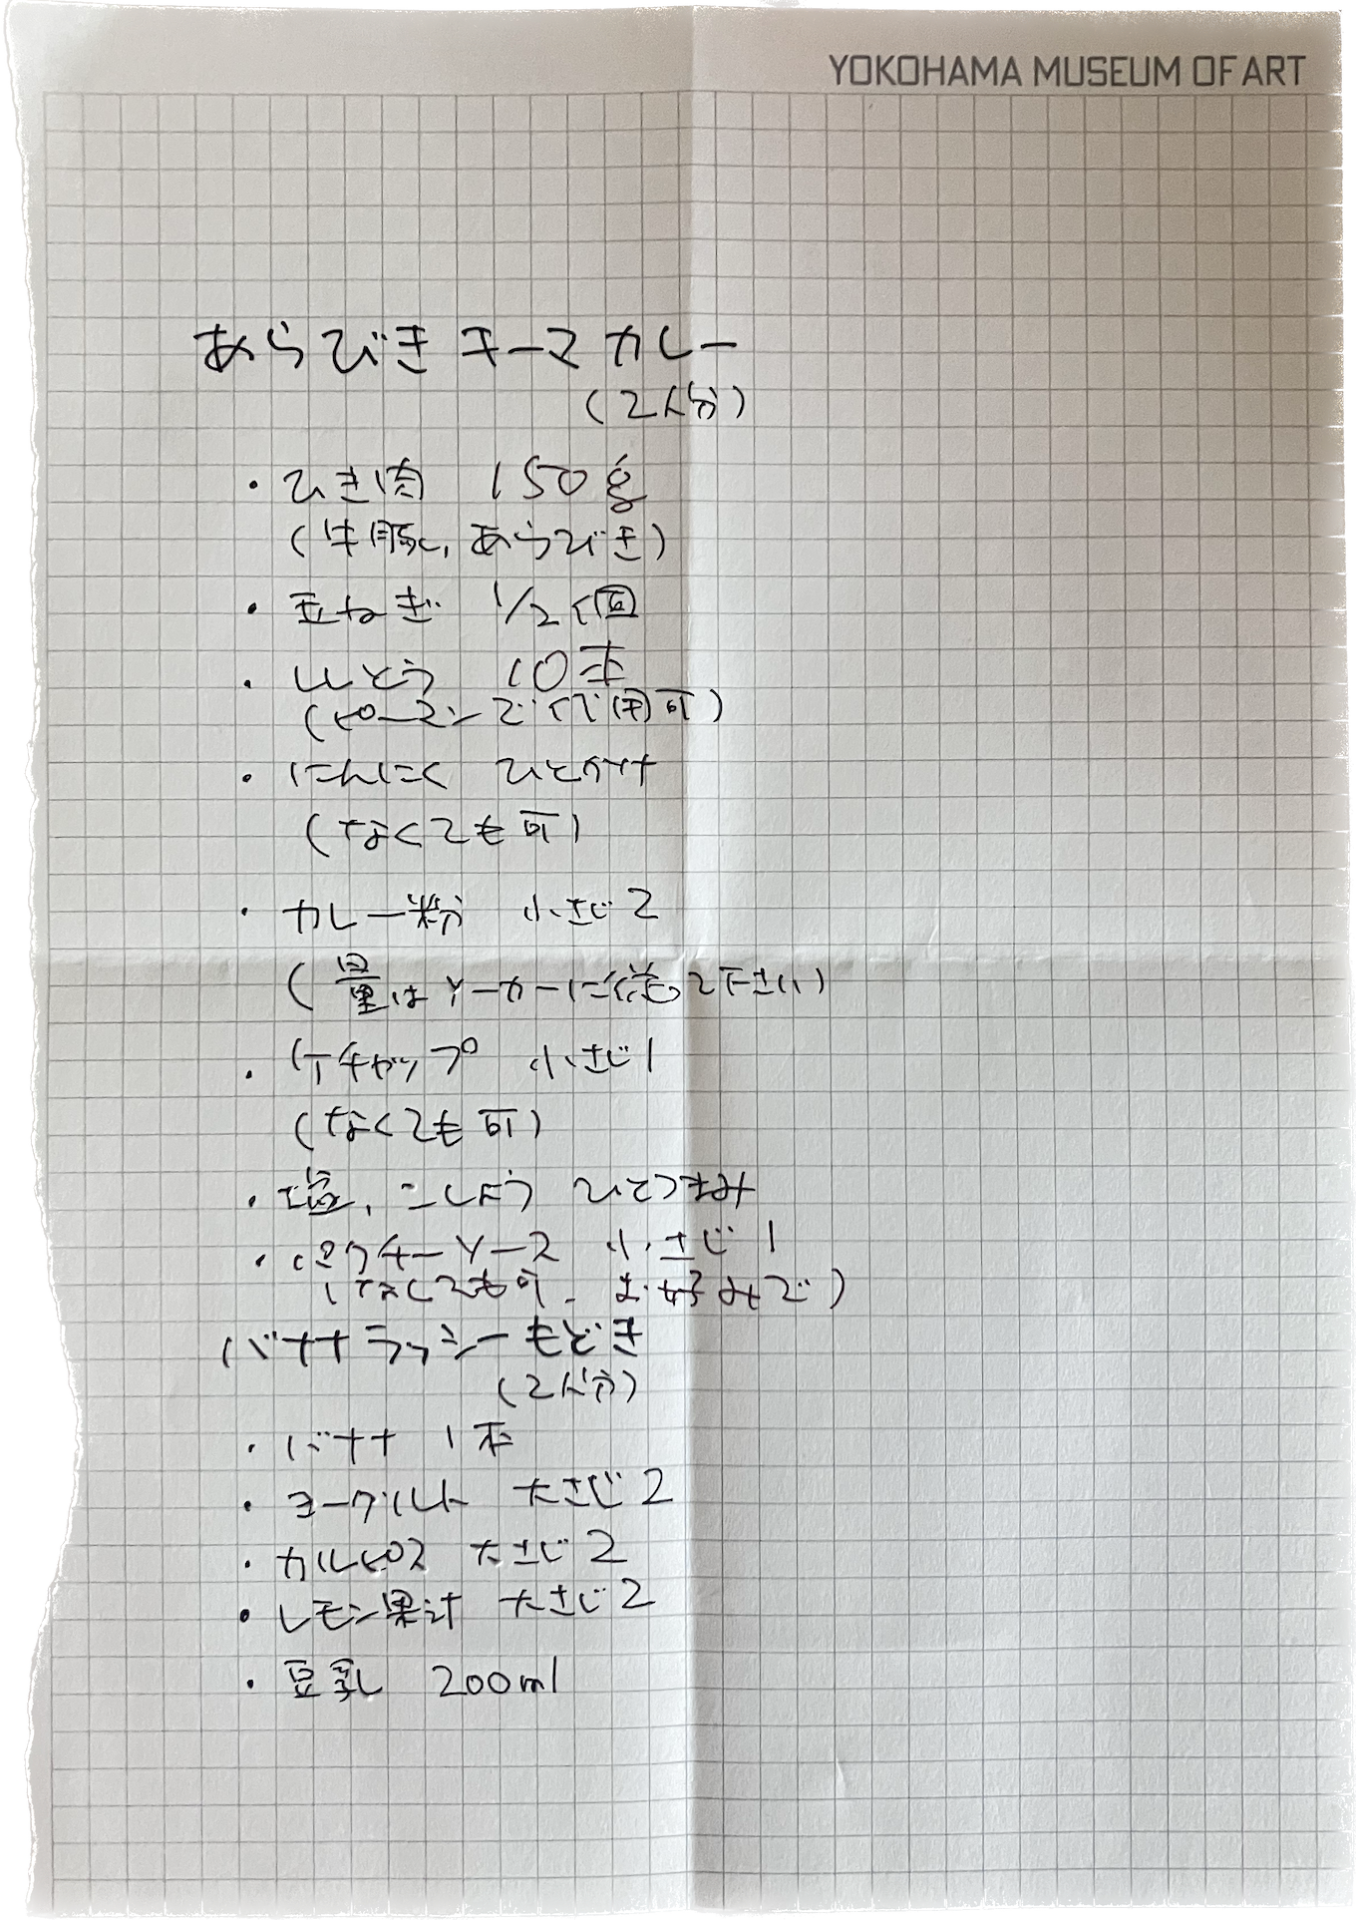 YOKOHAMA MUSEUM OF ART
あらびきキーマカレー
(2人分)
・ひき肉 150g
(牛豚、あらびき)
・玉ねぎ 1/2個
・ししとう 10本
(ピーマンで代用可)
・にんにく ひとかけ
(なくても可)
・カレー粉 小さじ2
(量はメーカーに従って下さい)
・ケチャップ 小さじ1
(なくても可)
・塩、こしょう ひとつまみ
・パクチーソース 小さじ1
(なくても可、お好みで)
バナナラッシーもどき
(2人分)
・バナナ 1本
・ヨーグルト 大さじ2
・カルピス 大さじ2
・レモン果汁 大さじ2
・豆乳 200ml